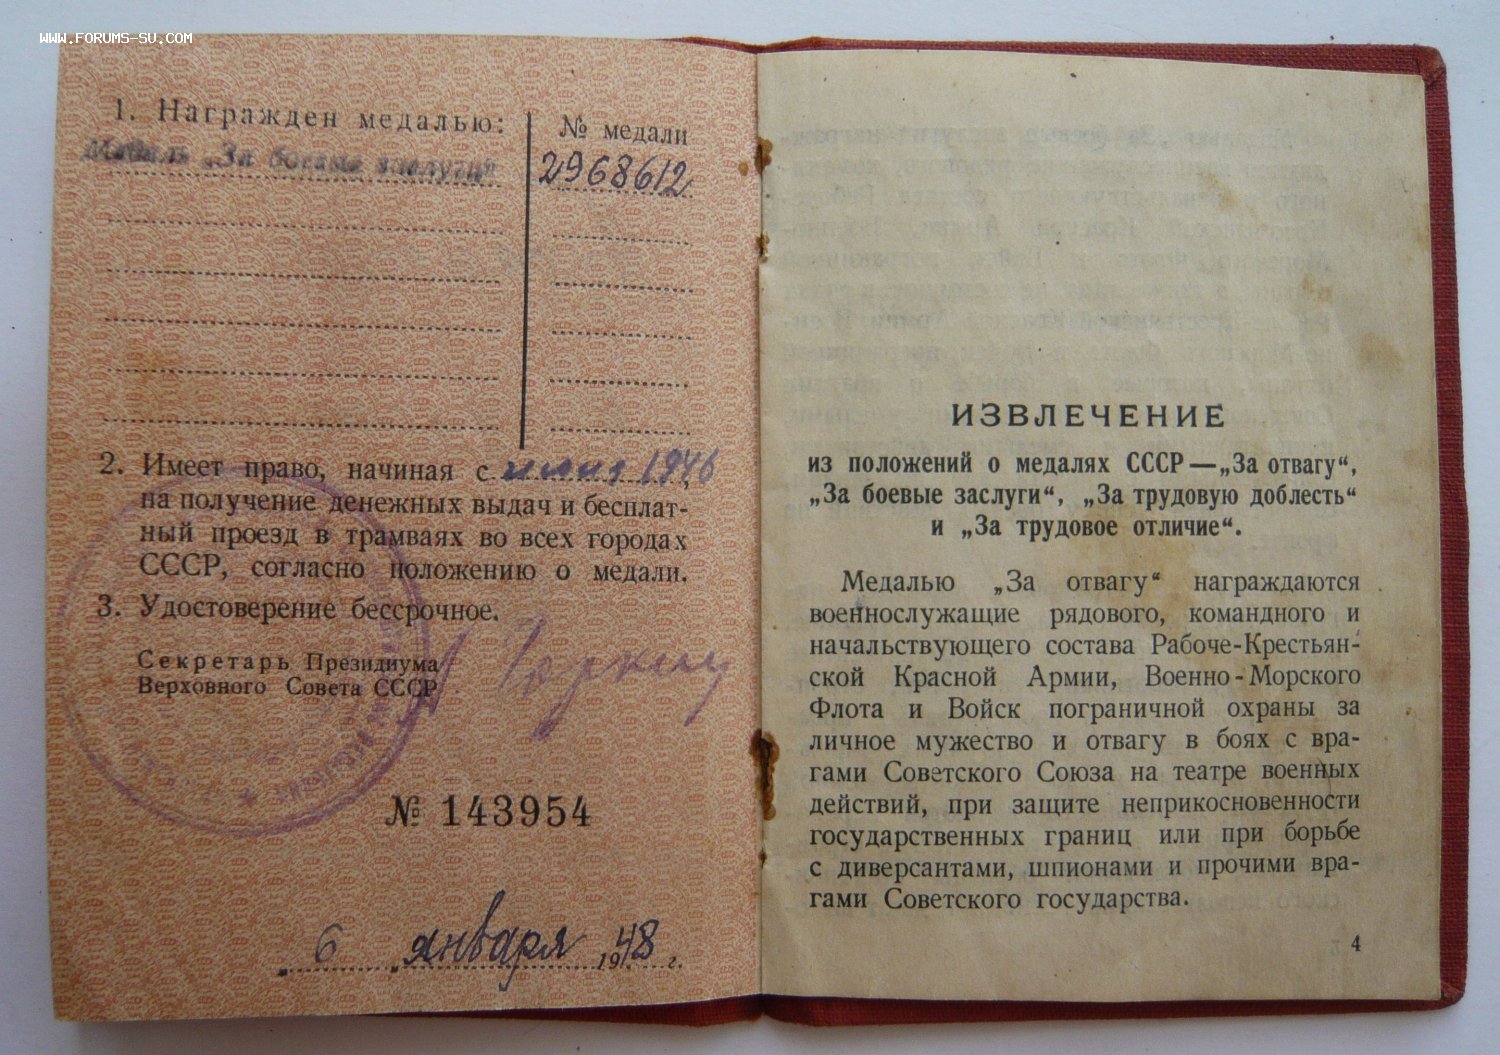 WWW.FORUMS-SU.COM
1. Награжден медалью:
№ медали
Медаль „За боевые заслуги“
2968612
2. Имеет право, начиная с 1946
на получение денежных выдач и бесплат-
ный проезд в трамваях во всех городах
СССР, согласно положению о медали.
3. Удостоверение бессрочное.
Секретарь Президиума
Верховного Совета СССР
№ 143954
6 января 1948 г.
ИЗВЛЕЧЕНИЕ
из положений о медалях СССР—„За отвагу“,
„За боевые заслуги“, „За трудовую доблесть“
и „За трудовое отличие“.
Медалью „За отвагу“ награждаются
военнослужащие рядового, командного и
начальствующего состава Рабоче-Крестьян-
ской Красной Армии, Военно-Морского
Флота и Войск пограничной охраны за
личное мужество и отвагу в боях с вра-
гами Советского Союза на театре военных
действий, при защите неприкосновенности
государственных границ или при борьбе
с диверсантами, шпионами и прочими вра-
гами Советского государства.
4